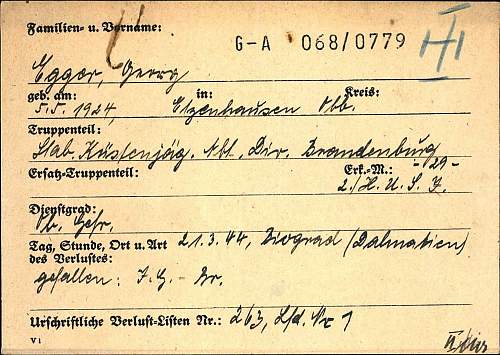 Familien- u. Vorname:
G-A 068/0779
Egger, Georg
geb. am: in: Kreis:
5.5.1924, Etzenhausen Obb.
Truppenteil:
Stab. Küstenjäg. Abt. Div. Brandenburg
Ersatz-Truppenteil: Erk.-M.: -29-
2./H.U.S.F.
Dienstgrad:
Ob. Gefr.
Tag, Stunde, Ort u. Art 21.3.44, Biograd (Dalmatien)
des Verlustes:
gefallen: I.G. - Br.
Urschriftliche Verlust-Listen Nr.: 263, Lfd. Nr 1
V 1